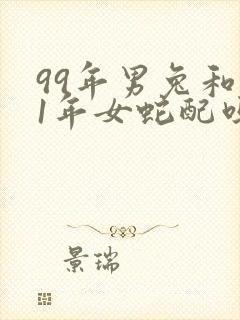 99年男兔和
1年女蛇配
景瑞